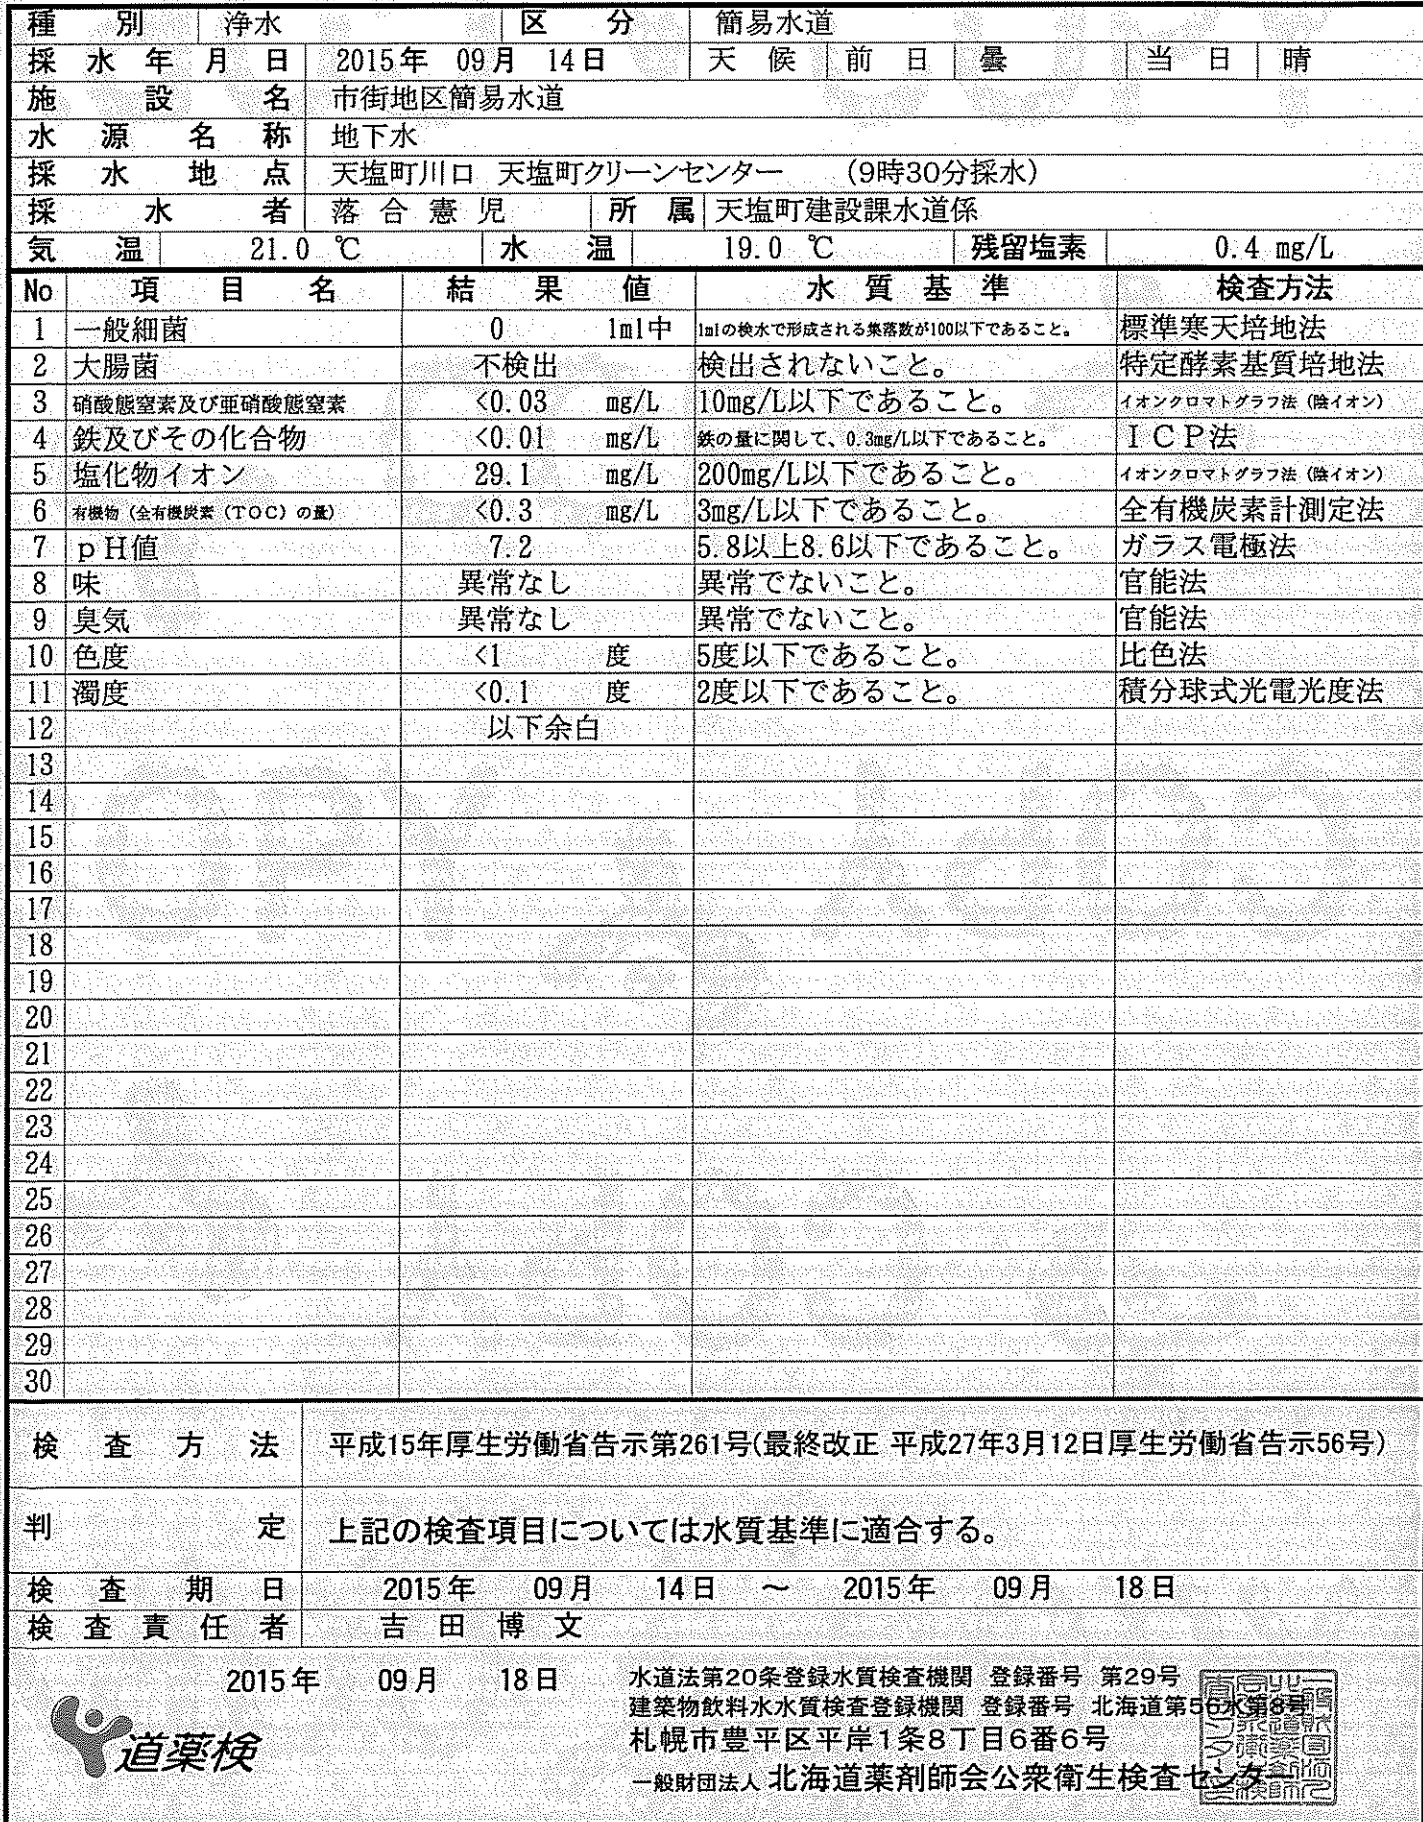 種別 浄水 区分 簡易水道
採水年月日 2015年 09月 14日 天候 前日 曇 当日 晴
施設名 市街地区簡易水道
水源名称 地下水
採水地点 天塩町川口 天塩町クリーンセンター (9時30分採水)
採水者 落合憲児 所属 天塩町建設課水道係
気温 21.0 ℃ 水温 19.0 ℃ 残留塩素 0.4 mg/L
No 項目名 結果値 水質基準 検査方法
1 一般細菌 0 1ml中 1mlの検水で形成される集落数が100以下であること。 標準寒天培地法
2 大腸菌 不検出 検出されないこと。 特定酵素基質培地法
3 硝酸態窒素及び亜硝酸態窒素 <0.03 mg/L 10mg/L以下であること。 イオンクロマトグラフ法(陰イオン)
4 鉄及びその化合物 <0.01 mg/L 鉄の量に関して、0.3mg/L以下であること。 ICP法
5 塩化物イオン 29.1 mg/L 200mg/L以下であること。 イオンクロマトグラフ法(陰イオン)
6 有機物(全有機炭素(TOC)の量) <0.3 mg/L 3mg/L以下であること。 全有機炭素計測定法
7 pH値 7.2 5.8以上8.6以下であること。 ガラス電極法
8 味 異常なし 異常でないこと。 官能法
9 臭気 異常なし 異常でないこと。 官能法
10 色度 <1 度 5度以下であること。 比色法
11 濁度 <0.1 度 2度以下であること。 積分球式光電光度法
12 以下余白
13
14
15
16
17
18
19
20
21
22
23
24
25
26
27
28
29
30
検査方法 平成15年厚生労働省告示第261号(最終改正 平成27年3月12日厚生労働省告示56号)
判定 上記の検査項目については水質基準に適合する。
検査期日 2015年 09月 14日 ~ 2015年 09月 18日
検査責任者 吉田博文
2015年 09月 18日
水道法第20条登録水質検査機関 登録番号 第29号
建築物飲料水水質検査登録機関 登録番号 北海道第56水第8号
札幌市豊平区平岸1条8丁目6番6号
一般財団法人 北海道薬剤師会公衆衛生検査センター
道薬検